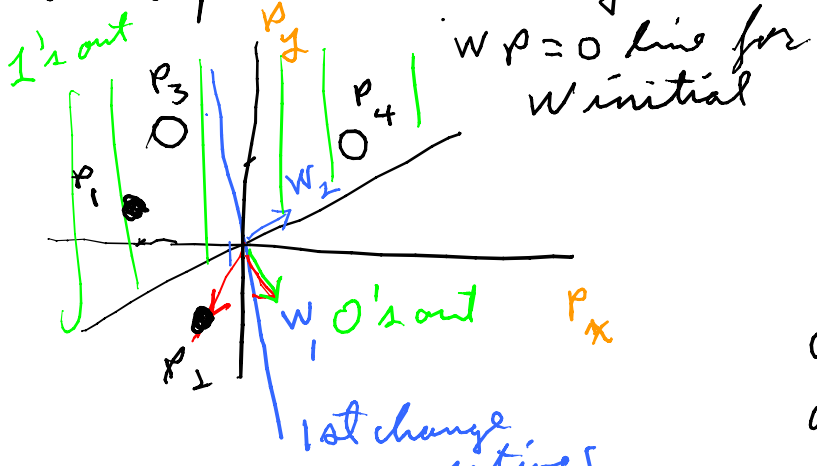 1's out
Py
WP = 0 line for
W initial
P3
P4
P1
W2
W1
0's out
Px
P1
1st change